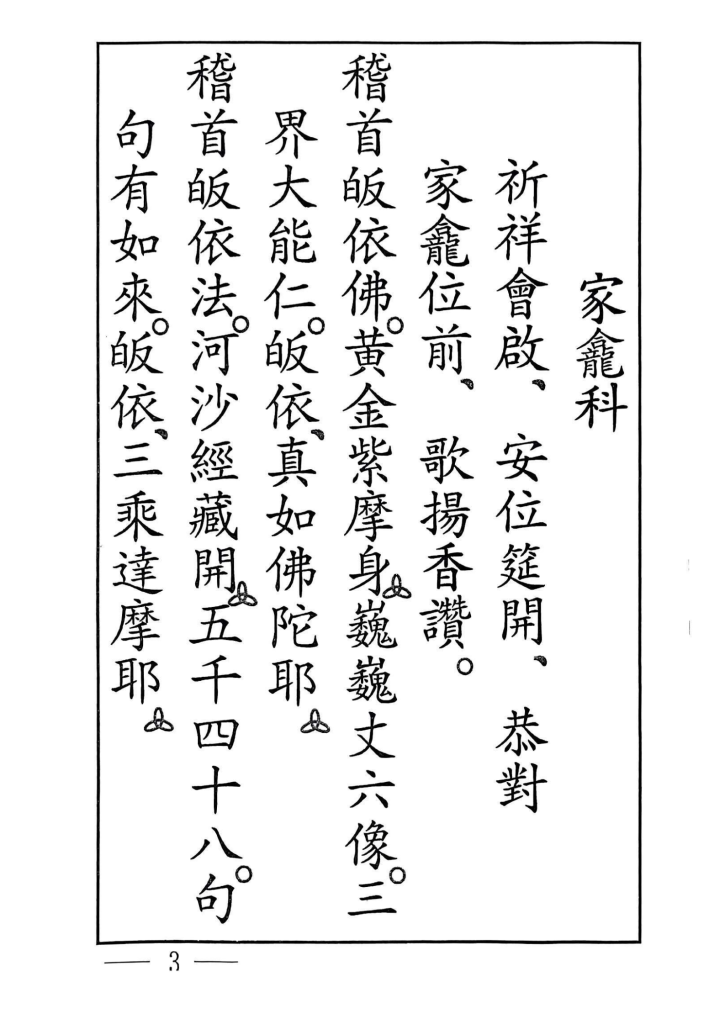 家龕科
祈祥會啟、安位筵開、恭對
家龕位前、歌揚香讚。
稽首皈依佛。黃金紫摩身巍巍丈六像。三
界大能仁。皈依、真如佛陀耶
稽首皈依法。河沙經藏開五千四十八。句
句有如來。皈依、三乘達摩耶
3